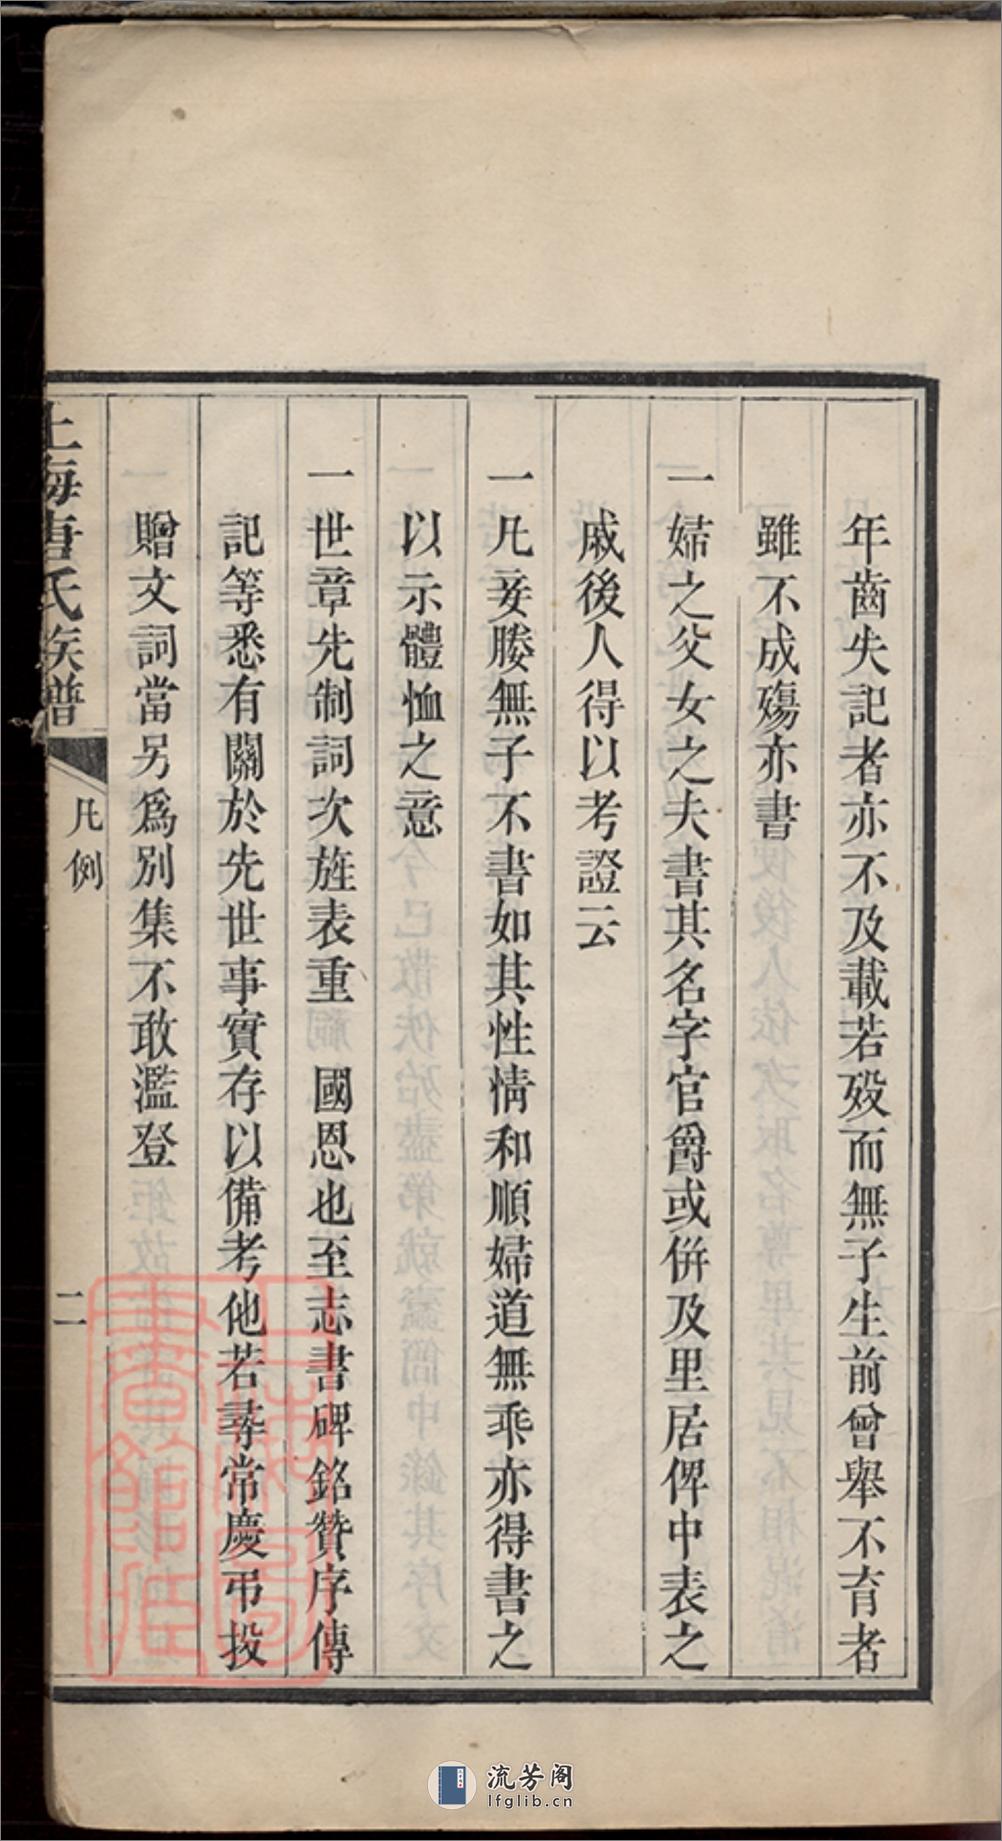 年齒失記者亦不及載若歿而無子生前曾舉不育者
雖不成殤亦書
一婦之父女之夫書其名字官爵或併及里居俾中表之
戚後人得以考證云
一凡妾媵無子不書如其性情和順婦道無乖亦得書之
以示體恤之意
一世章先制詞次旌表重 國恩也至志書碑銘贊序傳
記等悉有關於先世事實存以備考他若尋常慶弔投
贈文詞當另為別集不敢濫登
上海唐氏族譜
凡例
二
流芳阁
lfglib.cn